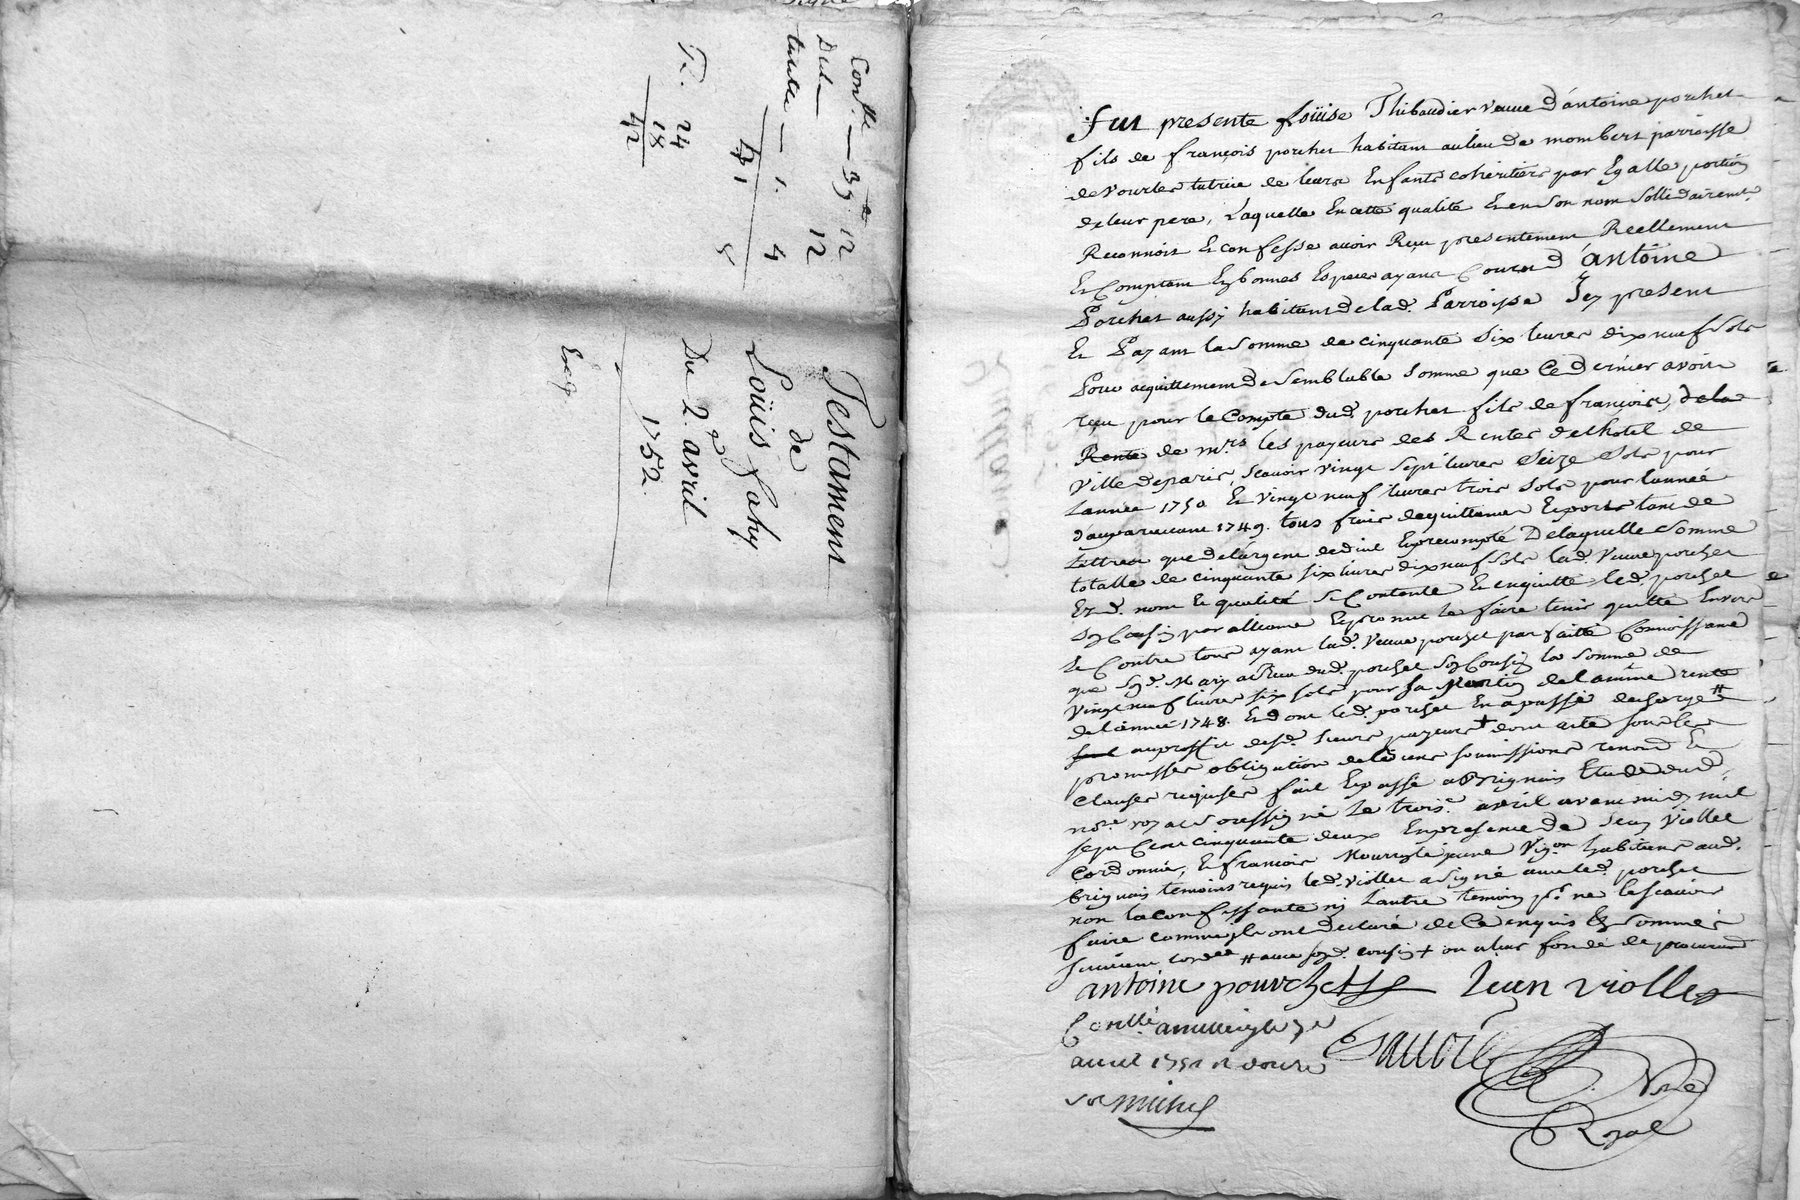 Testament
de
Loüis faby
Du 2.e avril
1752.
Enq
Con.lle — 39 12
Dist — 12
— 1. 4
R. 24
18
42
fut presente Loüise Thibaudier veuve d'antoine porchet
fils de françois porchet habitant au lieu de mombert parroisse
de vourles tutrice de leurs Enfants coheritiers par Egalle portion
de leur pere, Laquelle En cette qualité Et en son nom sollidairem.t
Reconnoit Et confesse avoir Reçu presentement Reellement
Et Comptant En bonnes Especes ayant Cours d'antoine
Porchet aussy habitant de lad. Parroisse Icy present
Et Payant la somme de cinquante six livres dix neuf sols
Pour acquittement de semblable somme que Ce dernier avoit
reçu pour le Compte dud. porchet fils de françois, de la
Rente de m.rs les payeurs des Rentes de l'hotel de
Ville de paris, scavoir vingt sept livres seize sols pour
L'année 1750 Et vingt neuf livres trois sols pour l'année
d'auparavant 1749. tous frais de quittance Et port tant de
Lettres que de l'argent deduit Et precompté De laquelle somme
totalle de cinquante six livres dix neuf sols lad. Veuve porchet
Esd. nom Et qualité se Contente Et en quitte led. porchet
son Cousin par alliance Et promet le faire tenir quitte Envers
Et Contre tous ayant lad. Veuve porchet parfaitte Connoissance
que sond. Mary a Reçu dud. porchet son Cousin la somme de
Vingt neuf livres six sols pour sa portion de la même rente
de l'année 1748. Et dont led. porchet En a passé decharge #
au proffit desd. sieurs payeurs + dont acte sous les
promesses obligation de biens soumissions renond. Et
Clauses requises fait Et passé a Brignais Etude dud.
no.re royal soussigné Le trois.e avril avant midy mil
sept Cent cinquante deux En presence de Jean Viollet
Cordonnier, Et françois jeune Vig.on habitans aud.
brignais temoins requis led. viollet a signé avec led. porchet
non la confessante ny l'autre temoin p.r ne le scavoir
faire comme ils ont declaré de Ce enquis Et sommés
# avec sond. cousin + ou a leur fondé de procuration
antoine pourchet Jean viollet
Con.llé a
avril 1752 R douze
sols Michel
Sauvie
N.re
Royal